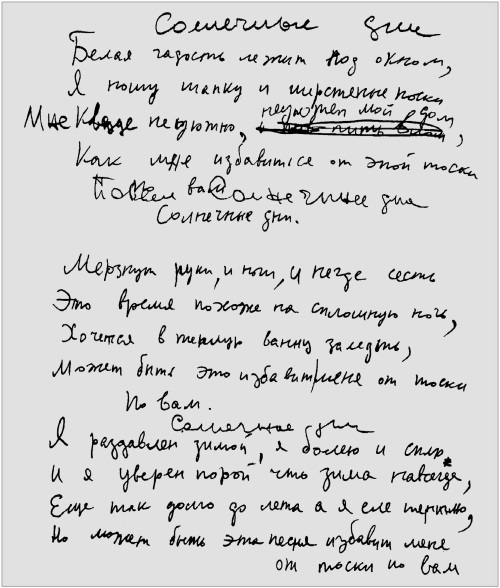 Солнечные дни
Белая гадость лежит под окном,
Я ношу шапку и шерстеные носки
Мне везде неуютно, неуютен мой дом,
Как мне избавится от этой тоски
По вам Солнечные дни
Солнечные дни.
Мерзнут руки, и ноги, и негде сесть
Это время похоже на сплошную ночь,
Хочется в теплую ванну залезть,
Может быть это избавит меня от тоски
По вам.
Солнечные дни
Я раздавлен зимой, я болею и сплю
И я уверен порой что зима навсегда,
Еще так долго до лета а я еле терплю,
Но может быть эта песня избавит меня
от тоски по вам